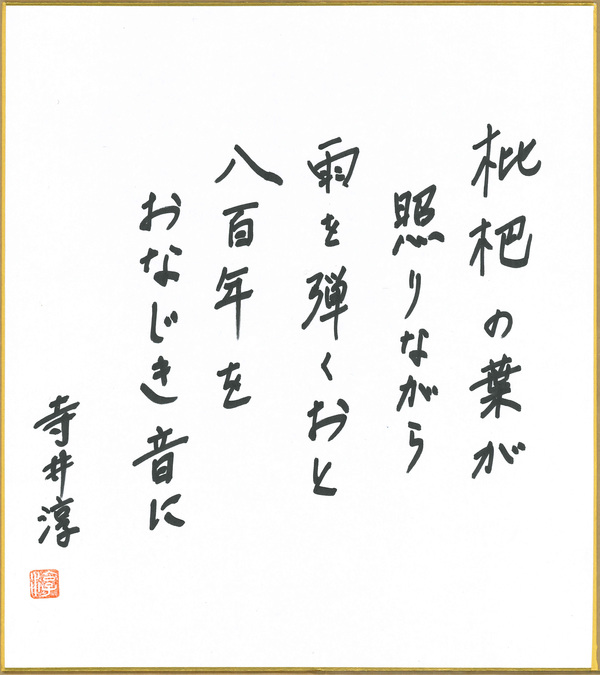 枇杷の葉が
照りながら
雨を弾くおと
八百年を
おなじき音に
寺井淳